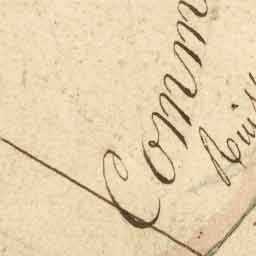 Comm
Ruis